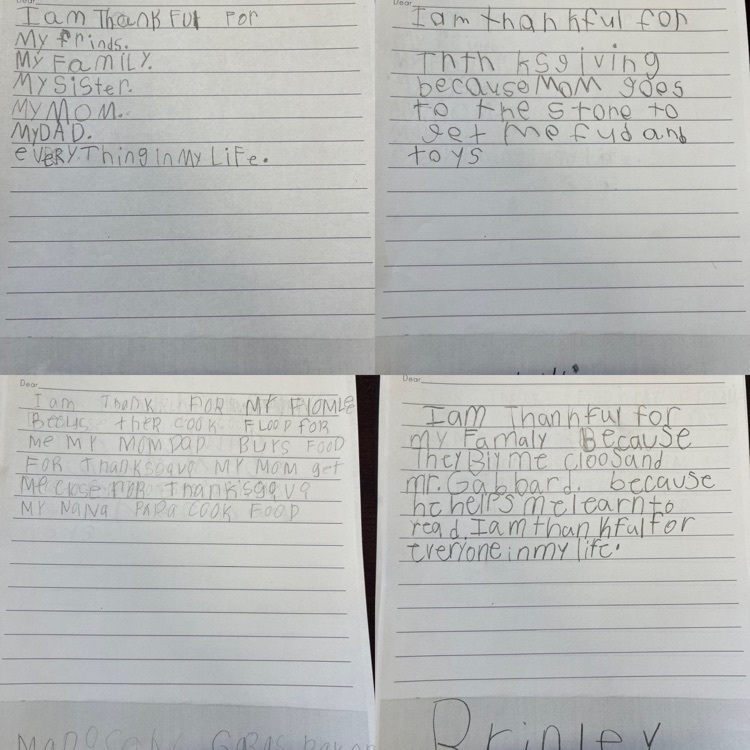 Dear
I am Thank FUl For
My frinds.
My FamiLY.
My SiSter.
My MOM.
MyDAD.
eVERYThing in My LiFe.
Dear
I am than kful for
Thth ksgiving
because MoM goes
to the store to
get me fud and
toys
Dear
I am Thonk FOR MY FIOMLe
Becuc ther COOK FLOOD FOR
Me MY MOM DAD BUYS FOOD
FOR thanksgavg MY MOM get
Me close FOR thanksgavg
MY NaNa PaPa COOK FOOD
Dear
I am Thankful for
my Famaly Because
They Biy me cloosand
mr. Gabbard. because
he helps me learn to
read. I am than kful for
everyone in my life.
Brinley